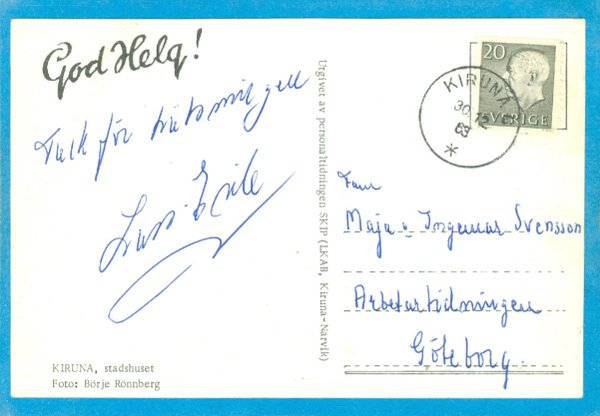 God Helg!
Tack för
Lars Erik
KIRUNA, stadshuset
Foto: Börje Rönnberg
Utgivet av personaltidningen SKIP (LKAB, Kiruna-Narvik)
20
SVERIGE
KIRUNA
30.
63
Fam
Maja o Ingemar Svensson
Arbetartidningen
Göteborg.